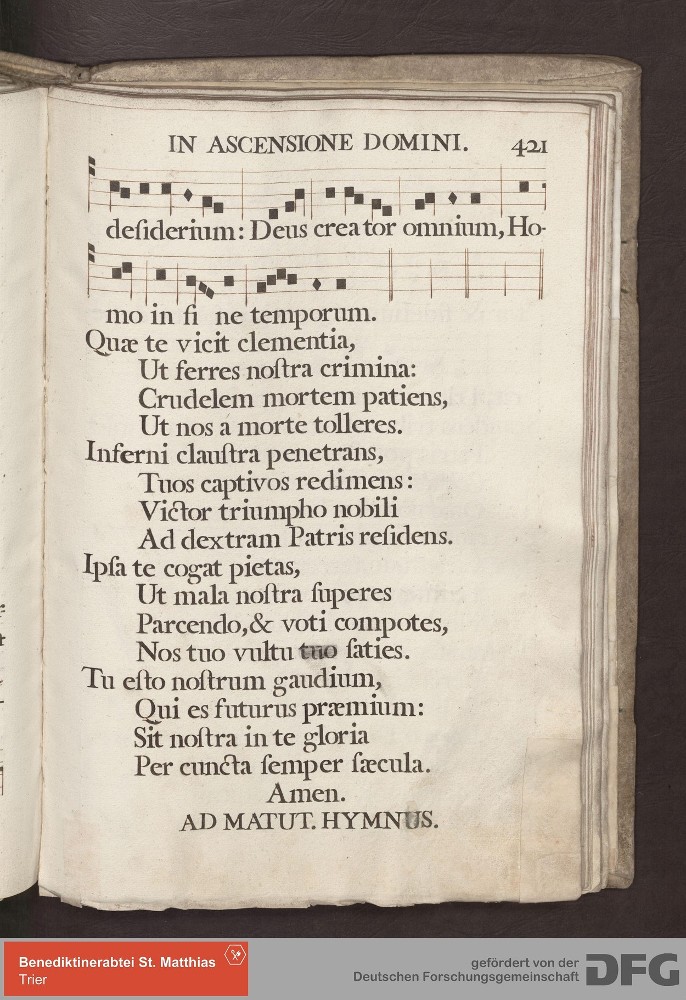 IN ASCENSIONE DOMINI. 421
deſiderium: Deus creator omnium, Ho-
mo in fi ne temporum.
Quæ te vicit clementia,
Ut ferres noſtra crimina:
Crudelem mortem patiens,
Ut nos á morte tolleres.
Inferni clauſtra penetrans,
Tuos captivos redimens:
Victor triumpho nobili
Ad dextram Patris reſidens.
Ipſa te cogat pietas,
Ut mala noſtra ſuperes
Parcendo, & voti compotes,
Nos tuo vultu tuo ſaties.
Tu eſto noſtrum gaudium,
Qui es futurus præmium:
Sit noſtra in te gloria
Per cuncta ſemper ſæcula.
Amen.
AD MATUT. HYMNUS.
Benediktinerabtei St. Matthias
Trier
gefördert von der
Deutschen Forschungsgemeinschaft DFG